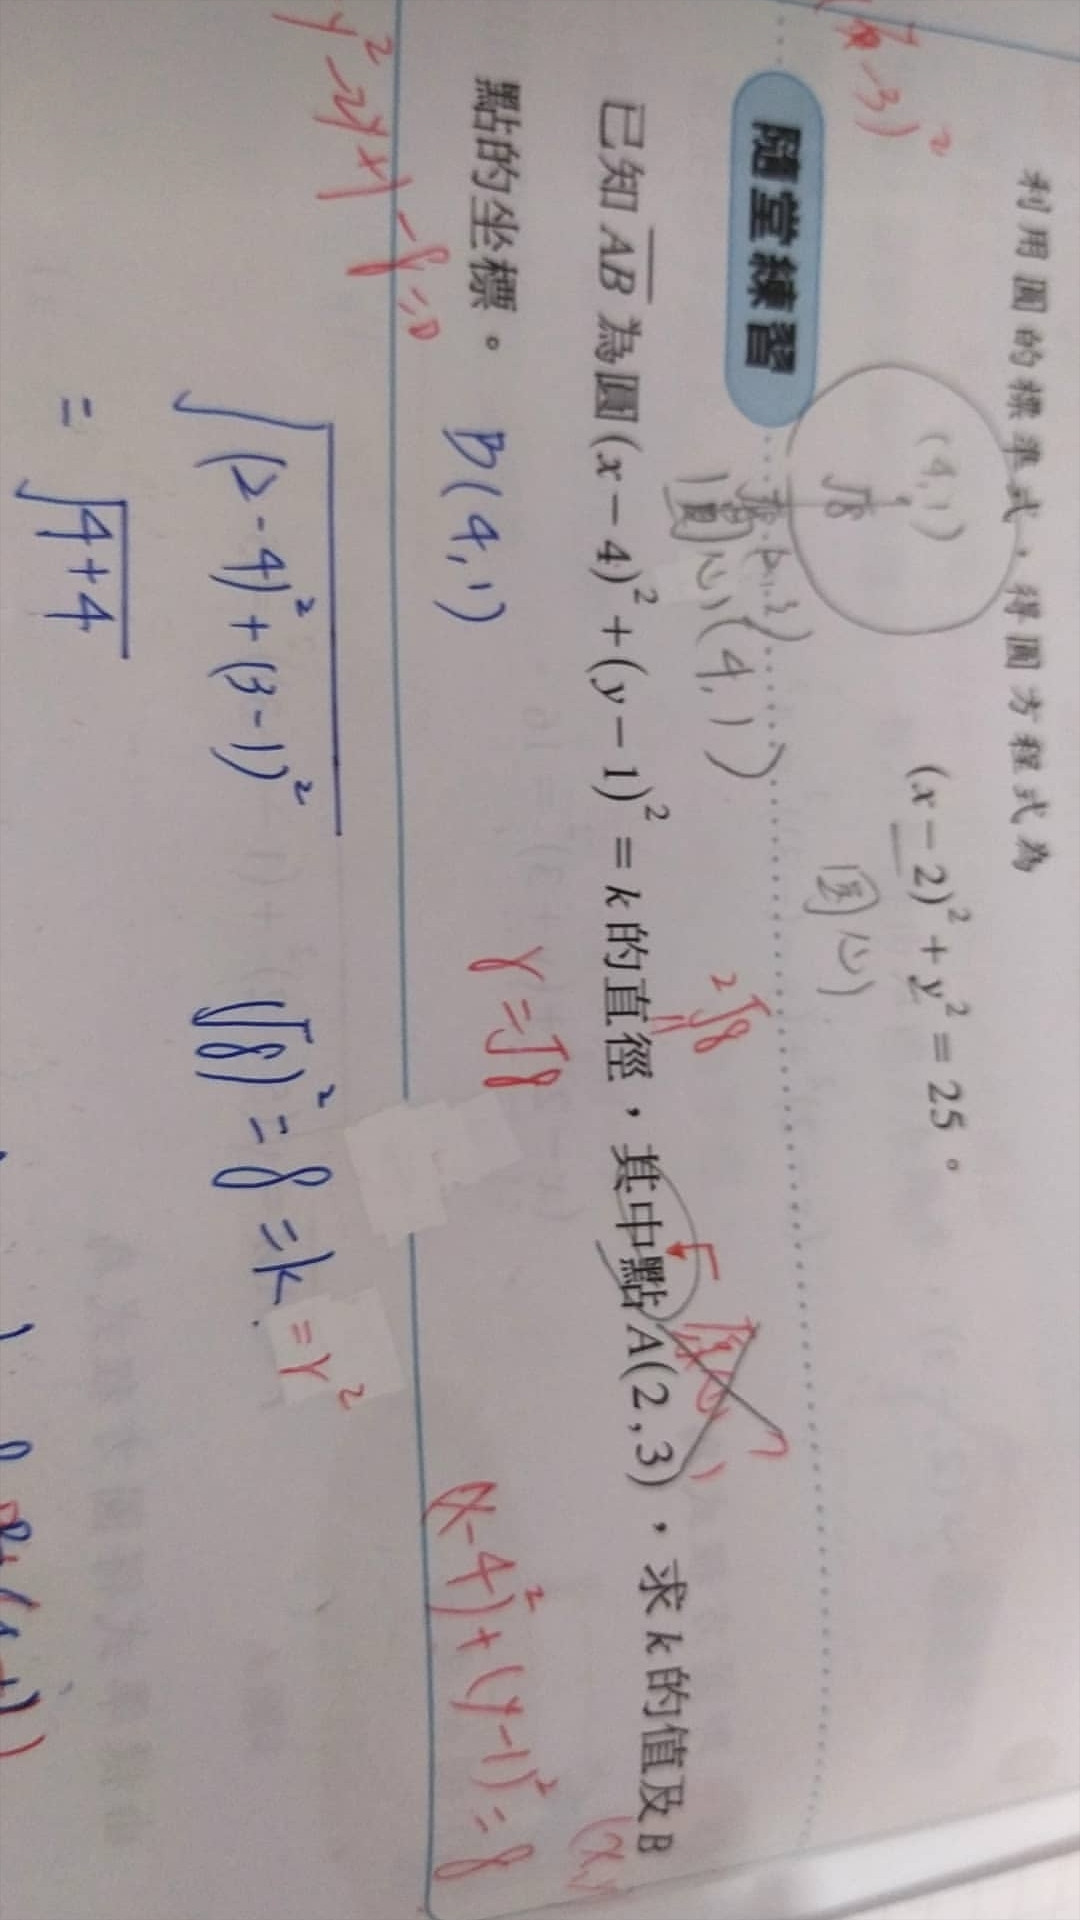 利用圓的標準式，得圓方程式為
(x－2)²＋y²＝25。
圓心
－3)²
(4,1)
√8
隨堂練習
圓心(4,1)
2√8
已知AB為圓(x－4)²＋(y－1)²＝k的直徑，其中點A(2,3)，求k的值及B
點的坐標。
B(4,1)
r=√8
(x-4)²+(y-1)²=8
-8=0
√(2-4)²+(3-1)²
(√8)²=8=k=r²
=√4+4